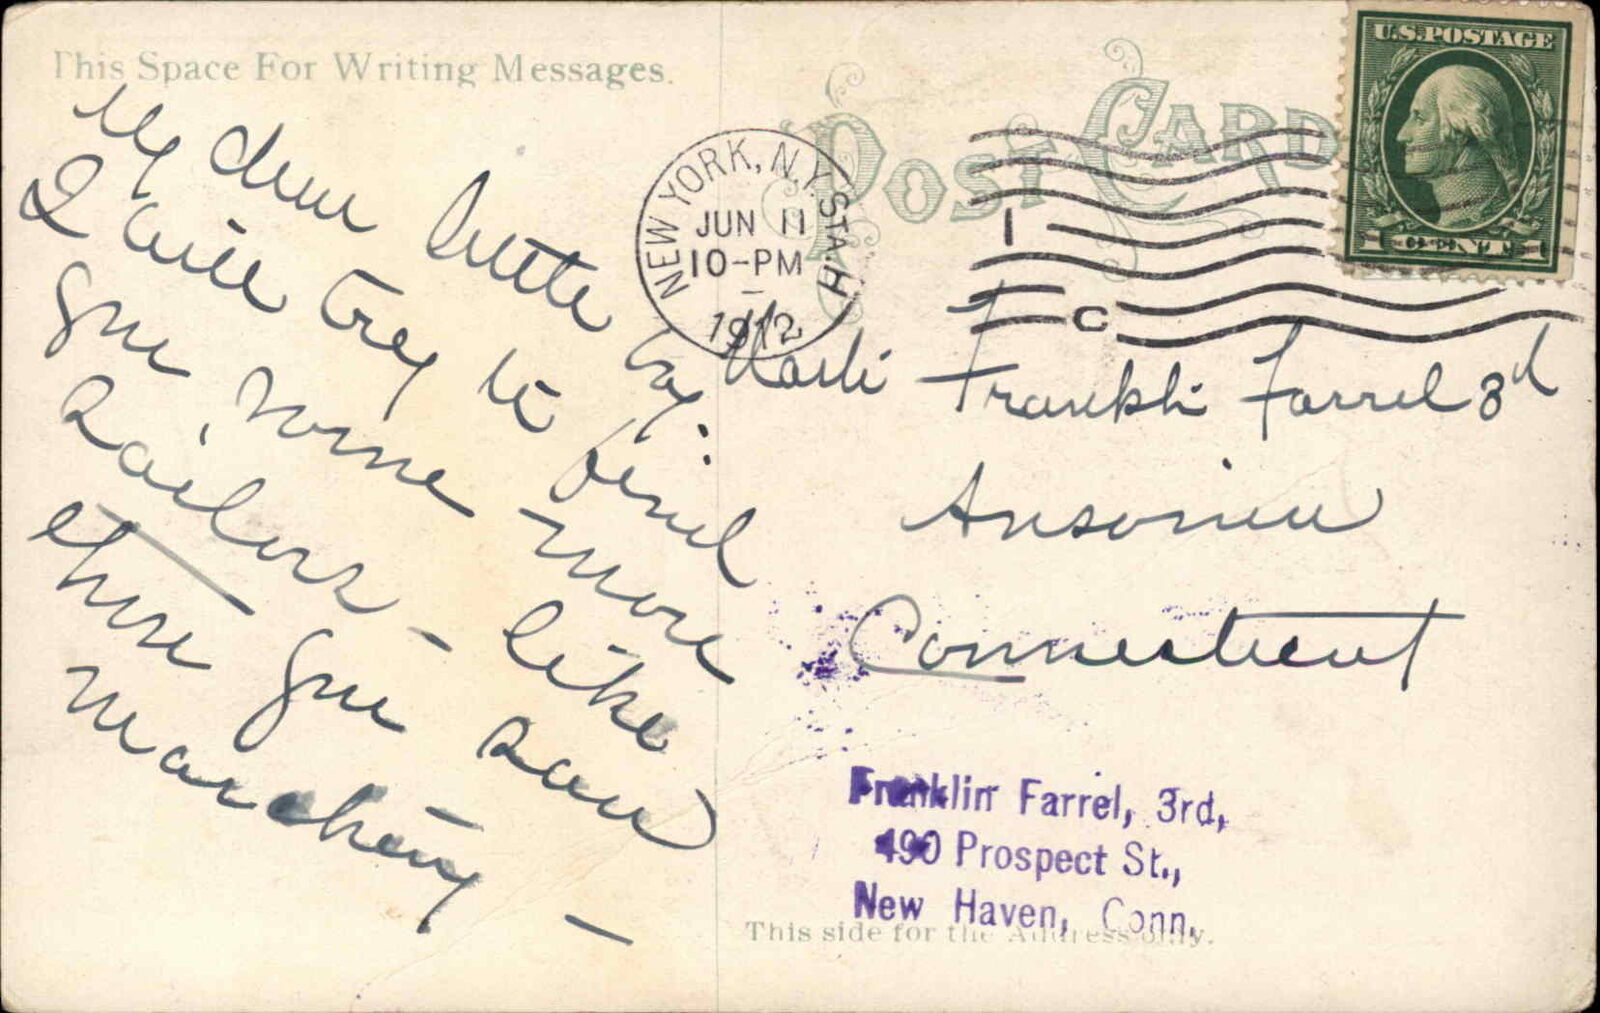 This Space For Writing Messages.
POST CARD
U.S. POSTAGE
NEW YORK, N.Y. STA. H
JUN 11
10-PM
1912
1 C
My dear little boy:
I will try to find
you some more
sailors - like
those you saw
marching -
Franklin Farrel 3d
Ansonia
Connecticut
Franklin Farrel, 3rd,
490 Prospect St.,
New Haven, Conn.
This side for the Address only.